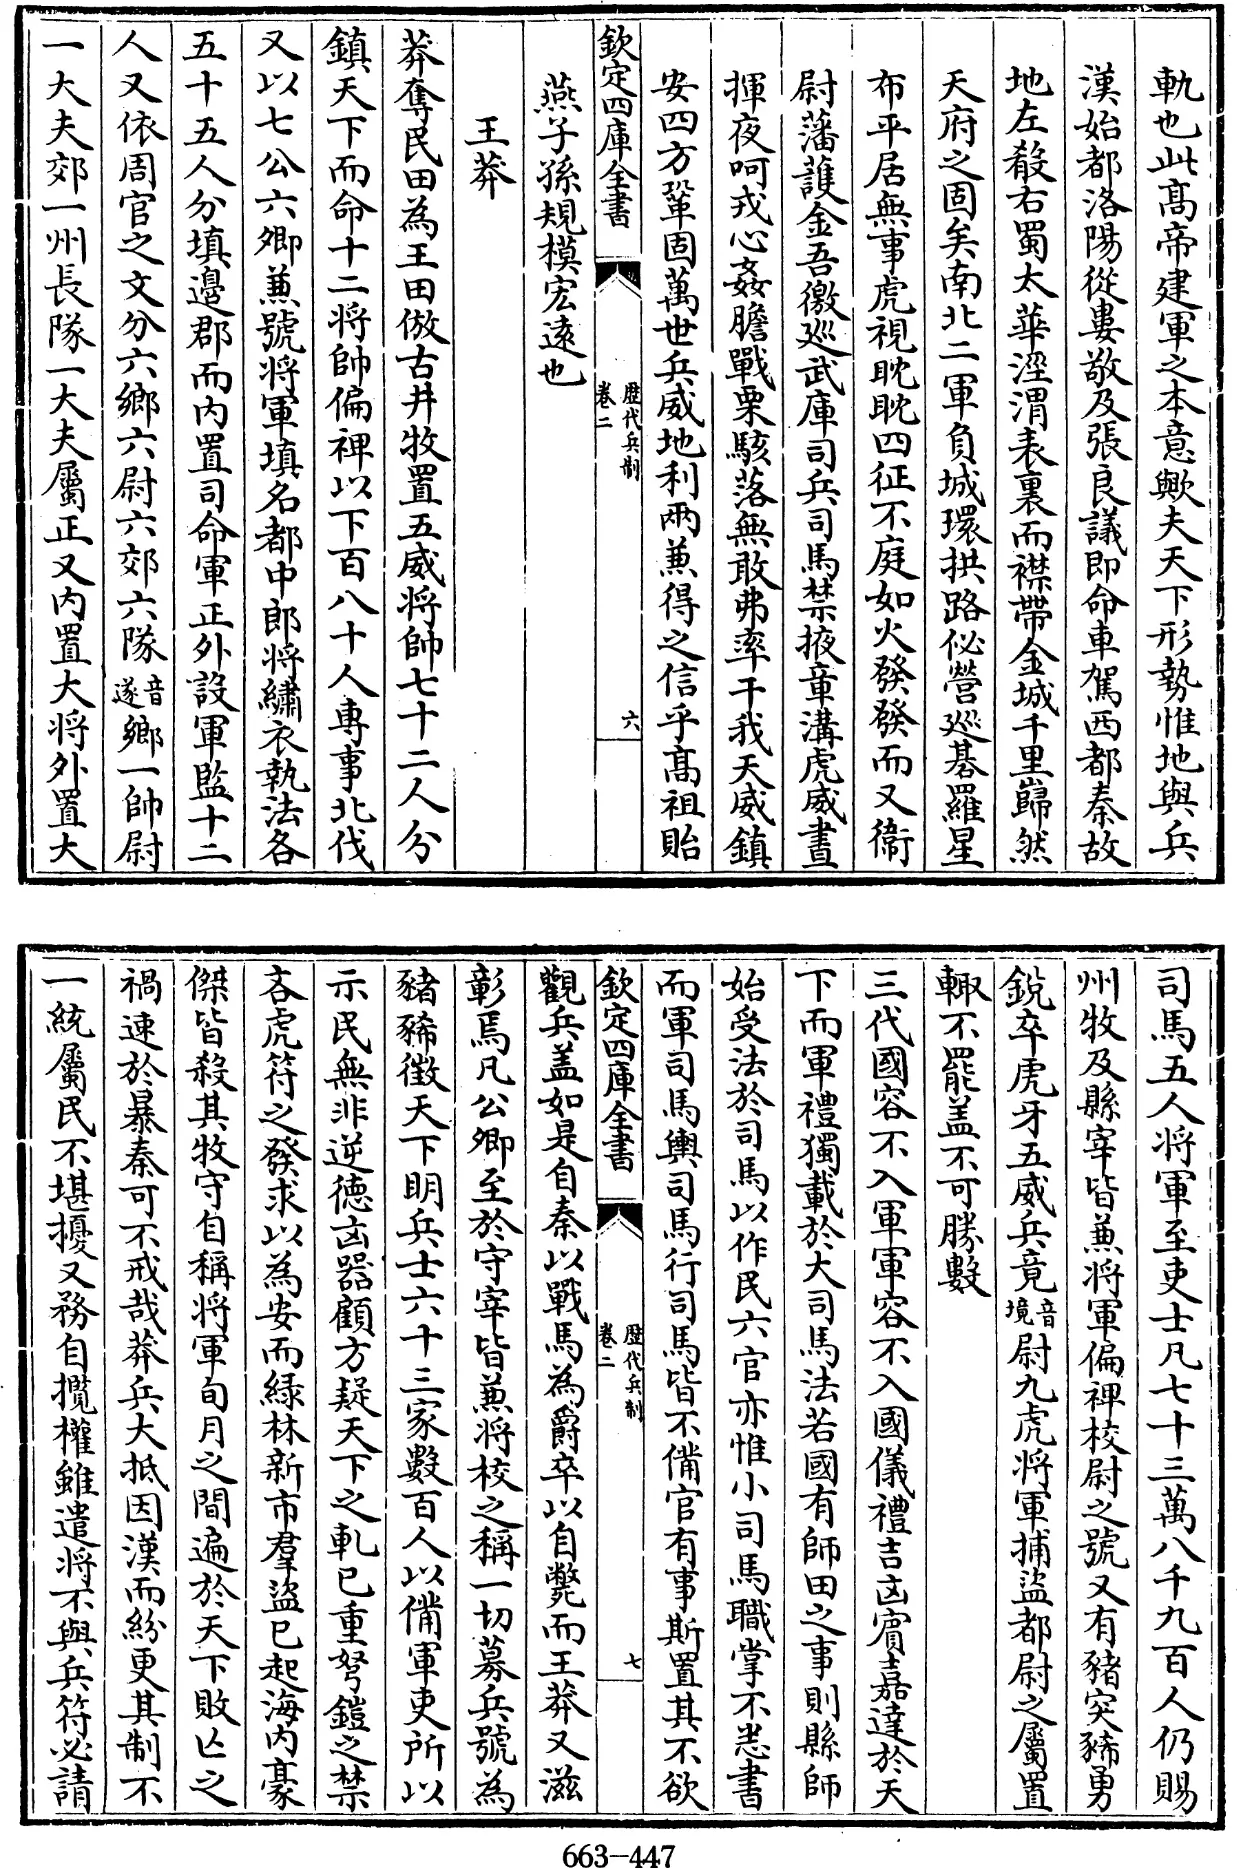 軌也此髙帝建軍之本意歟夫天下形勢惟地與兵
漢始都洛陽從婁敬及張良議即命車駕西都秦故
地左殽右蜀太華涇渭表裏而襟帶金城千里巋然
天府之固矣南北二軍負城環拱路佖營巡碁羅星
布平居無事虎視耽耽四征不庭如火發發而又衞
尉藩䕶金吾徼廵武庫司兵司馬禁掖章溝虎威晝
揮夜呵戎心姦膽戰栗駭落無敢弗率干我天威鎮
安四方鞏固萬世兵威地利兩兼得之信乎髙祖貽
欽定四庫全書
歴代兵制
卷二
六
燕子孫規模宏逺也
王莽
莽奪民田為王田倣古井牧置五威將帥七十二人分
鎮天下而命十二將帥偏裨以下百八十人專事北伐
又以七公六卿兼號將軍填名都中郎將繡衣執法各
五十五人分填邉郡而内置司命軍正外設軍監十二
人又依周官之文分六鄉六尉六郊六隊音遂鄉一帥尉
一大夫郊一州長隊一大夫屬正又内置大將外置大
司馬五人將軍至吏士凡七十三萬八千九百人仍賜
州牧及縣宰皆兼將軍偏裨校尉之號又有豬突豨勇
銳卒虎牙五威兵竟音境尉九虎將軍捕盜都尉之屬置
輙不罷盖不可勝數
三代國容不入軍軍容不入國儀禮吉凶賓嘉達於天
下而軍禮獨載於大司馬法若國有師田之事則縣師
始受法於司馬以作民六官亦惟小司馬職掌不悉書
而軍司馬輿司馬行司馬皆不備官有事斯置其不欲
欽定四庫全書
歴代兵制
卷二
七
觀兵盖如是自秦以戰馬為爵卒以自斃而王莽又滋
彰焉凡公卿至於守宰皆兼將校之稱一切募兵號為
豬豨徴天下明兵士六十三家數百人以備軍吏所以
示民無非逆德凶器顧方疑天下之軋已重弩鎧之禁
吝虎符之發求以為安而緑林新市羣盜已起海内豪
傑皆殺其牧守自稱將軍旬月之間遍於天下敗亡之
禍速於暴秦可不戒哉莽兵大抵因漢而紛更其制不
一統屬民不堪擾又務自攬權雖遣將不與兵符必請
663-447